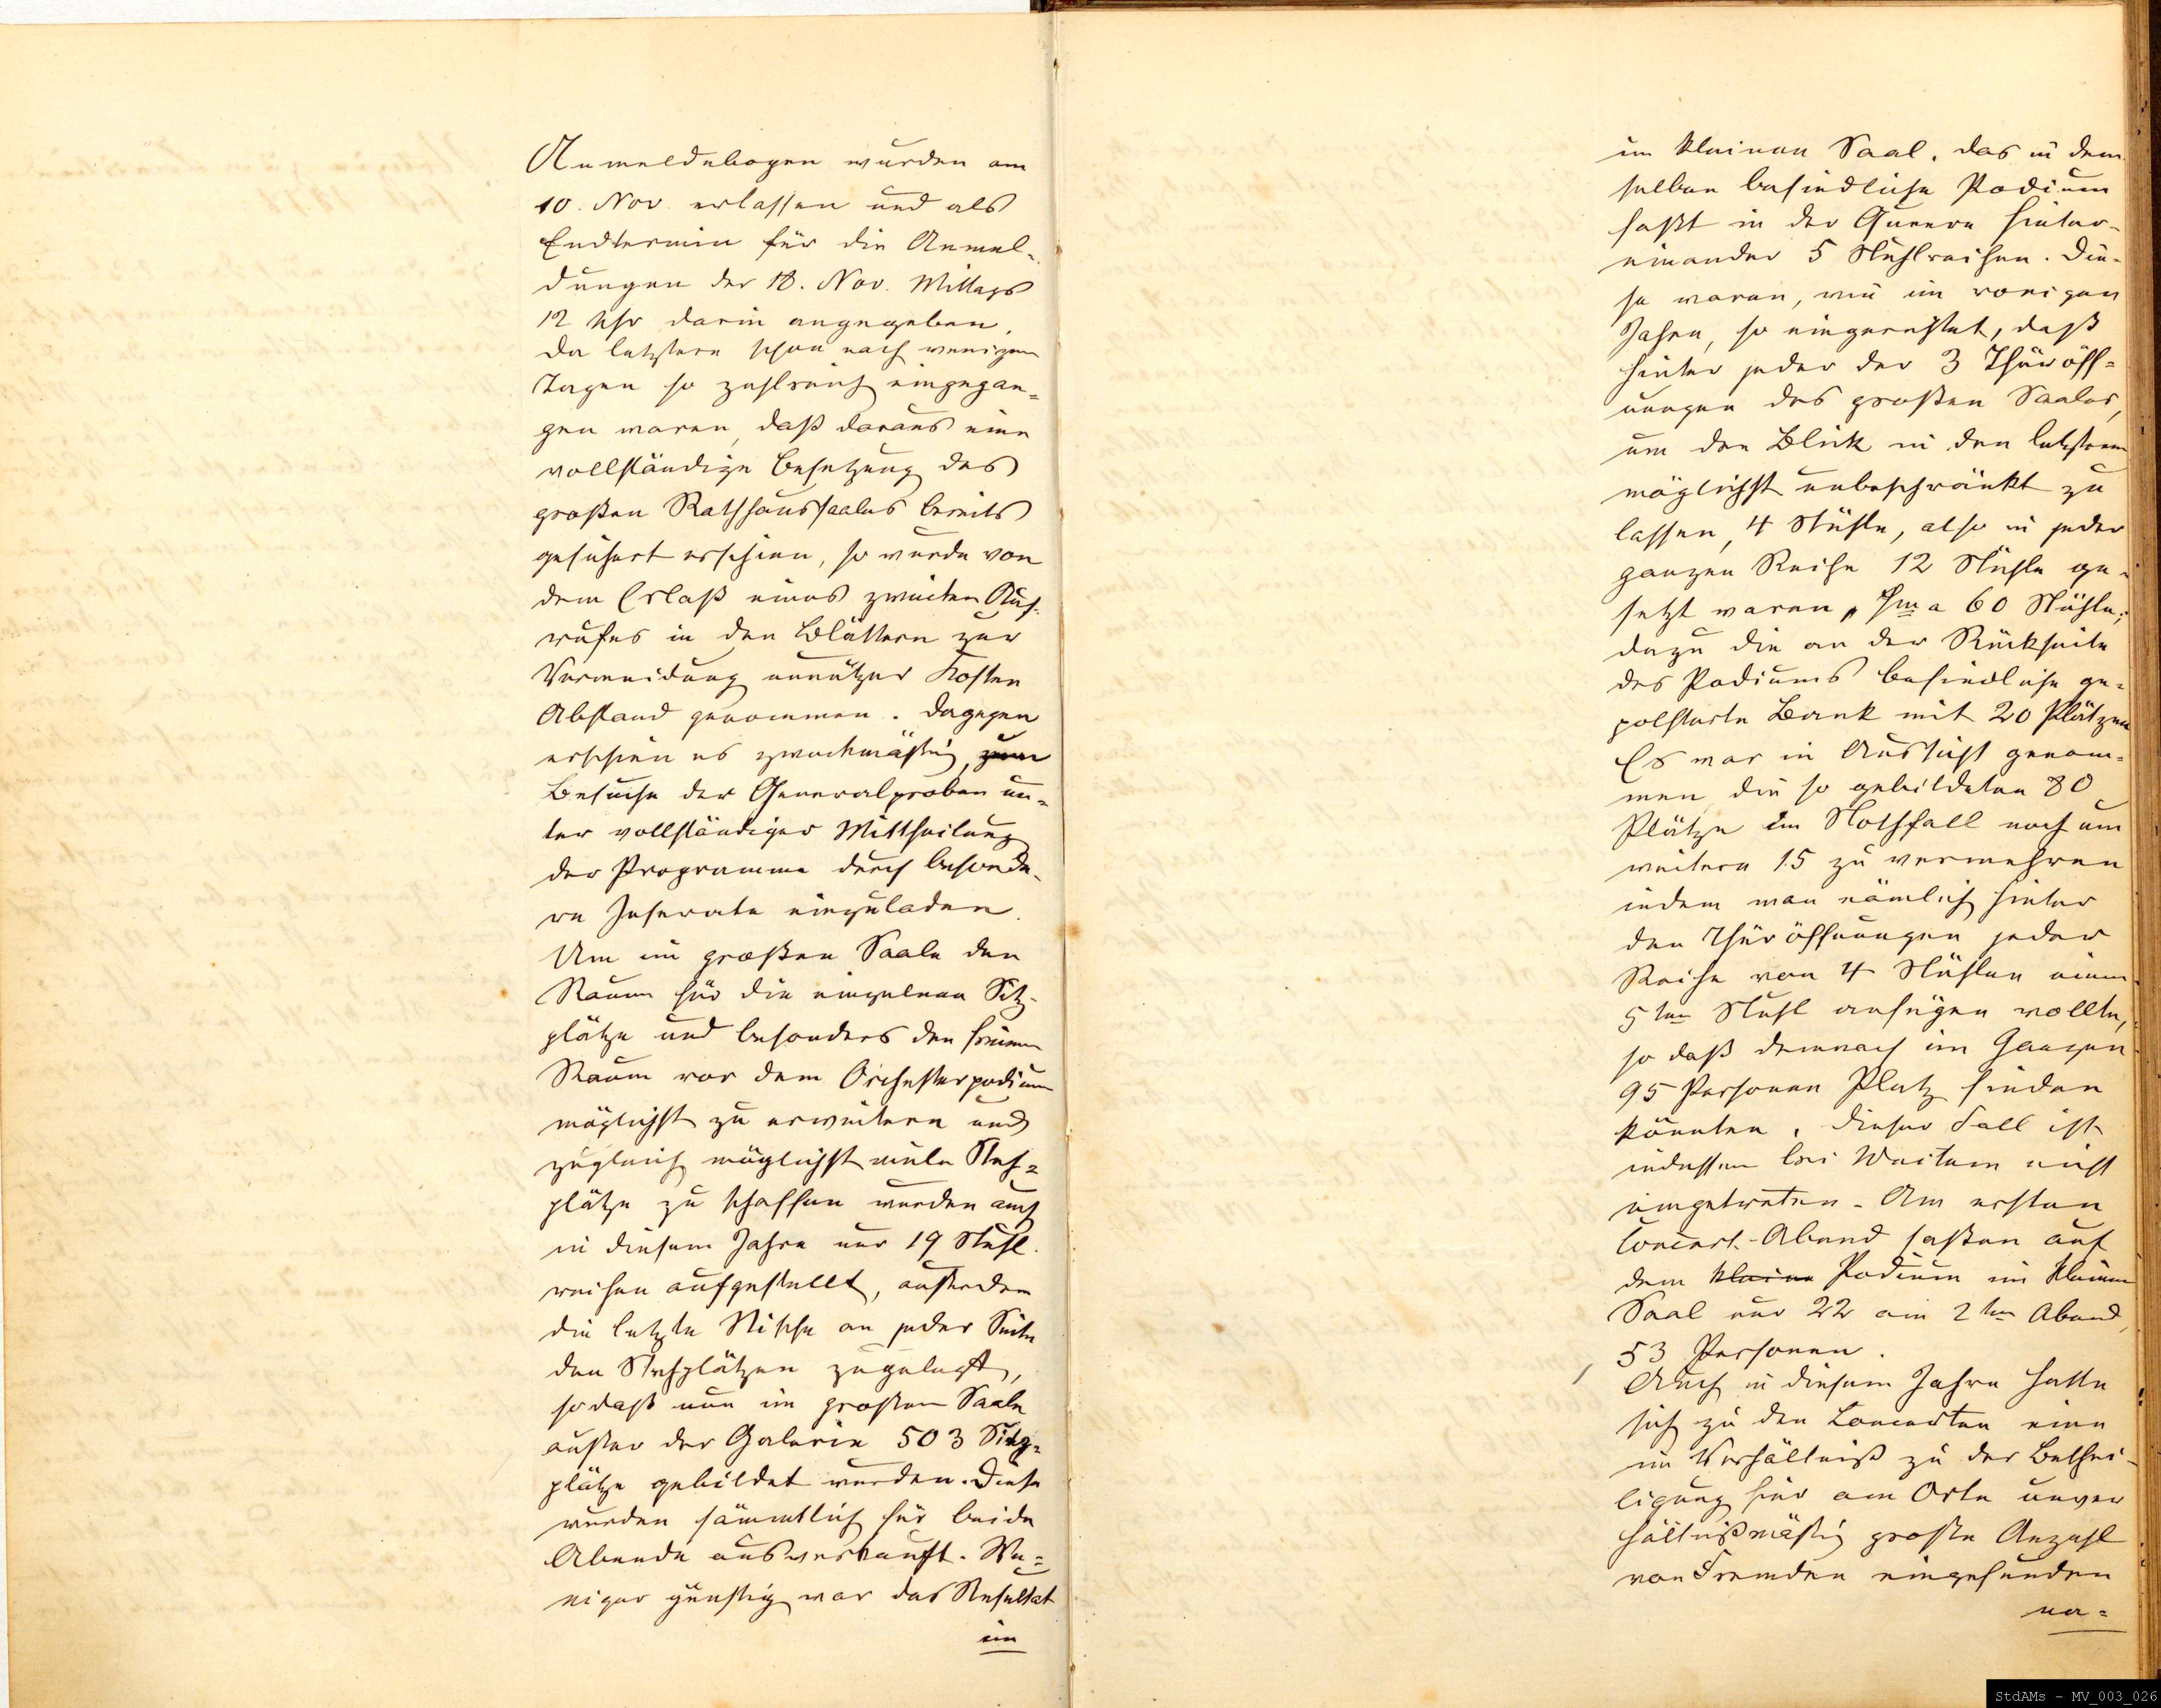 Anmeldebogen wurden am
10. Nov. erlassen und als
Endtermin für die Anmel-
dungen der 18. Nov. Mittags
12 Uhr darin angegeben.
Da letztere schon nach wenigen
Tagen so zahlreich eingegan=
gen waren, daß daraus eine
vollständige Besetzung des
großen Rathhaussaales bereits
gesichert erschien, so wurde von
dem Erlaß eines zweiten Auf-
rufes in den Blättern zur
Vermeidung unnützer Kosten
Abstand genommen. Dagegen
erschien es zweckmäßig, zum
Besuche der Generalproben un=
ter vollständiger Mittheilung
der Programme durch besonde-
re Inserate einzuladen.
Um im großen Saale den
Raum für die einzelnen Sitz-
plätze und besonders den freien
Raum vor dem Orchesterpodium
möglichst zu erweitern und
zugleich möglichst viele Steh=
plätze zu schaffen wurden auch
in diesem Jahre nur 19 Stuhl-
reihen aufgestellt, außerdem
die letzte Nische an jeder Seite
den Stehplätzen zugelegt,
sodaß nun im großen Saale
außer der Galerie 503 Sitz=
plätze gebildet wurden. Diese
wurden sämmtlich für beide
Abende ausverkauft. We=
niger günstig war das Resultat
im
im kleinen Saal. Das in dem
selben befindliche Podium
faßt in der Queere hinter-
einander 5 Stuhlreihen. Die-
se waren, wie im vorigen
Jahre, so eingerichtet, daß
hinter jeder der 3 Thüröff=
nungen des großen Saales,
um den Blick in den letzteren
möglichst unbeschränkt zu
lassen, 4 Stühle, also in jeder
ganzen Reihe 12 Stühle ge-
setzt waren, Sma 60 Stühle;
dazu die an der Rückseite
des Podiums befindliche ge=
polsterte Bank mit 20 Plätzen
Es war in Aussicht genom=
men die so gebildeten 80
Plätze im Nothfall noch um
weitere 15 zu vermehren
indem man nämlich hinter
den Thüröffnungen jeder
Reihe von 4 Stühlen einen
5ten Stuhl anfügen wollte,
so daß demnach im Ganzen
95 Personen Platz finden
könnten. Dieser Fall ist
indessen bei Weitem nicht
eingetreten. Am ersten
Concert-Abend saßen auf
dem kleine Podium im kleinen
Saal nur 22 am 2ten Abend,
53 Personen.
Auch in diesem Jahre hatte
sich zu den Concerten eine
im Verhältniß zu der Bethei-
ligung hier am Orte unver
hältnißmäßig große Anzahl
von Fremden eingefunden
na=
StdAMs - MV_003_026